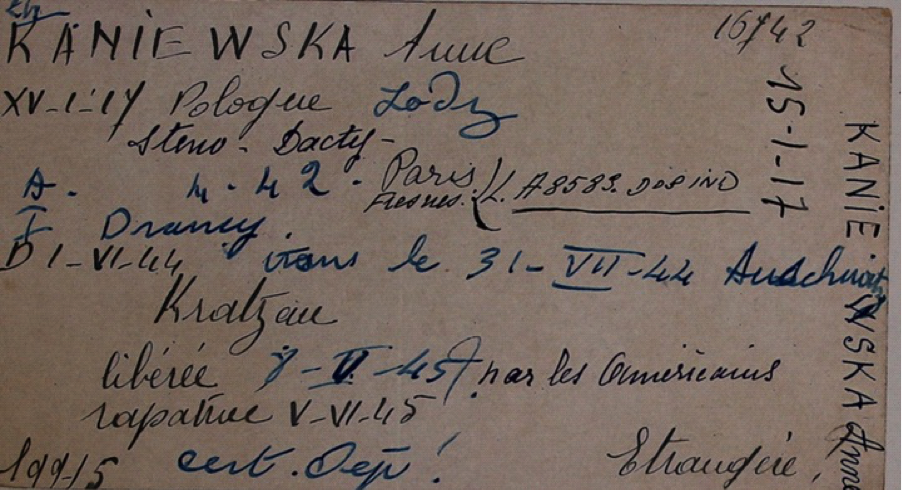 Etr
KANIEWSKA Anne
16742
XV-I-17 Pologne Lodz
Steno - Dactyl-
A. 4.42. Paris
Fresnes. L. A8583. DOS IND
I Drancy.
D 1-VI-44 trans le 31-VII-44 Auschwitz
Kratzau
libérée 8-V-45 par les Américains
rapatriée V-VI-45
19915 cert. Dep! Etrangère.
15-1-17
KANIEWSKA Anne